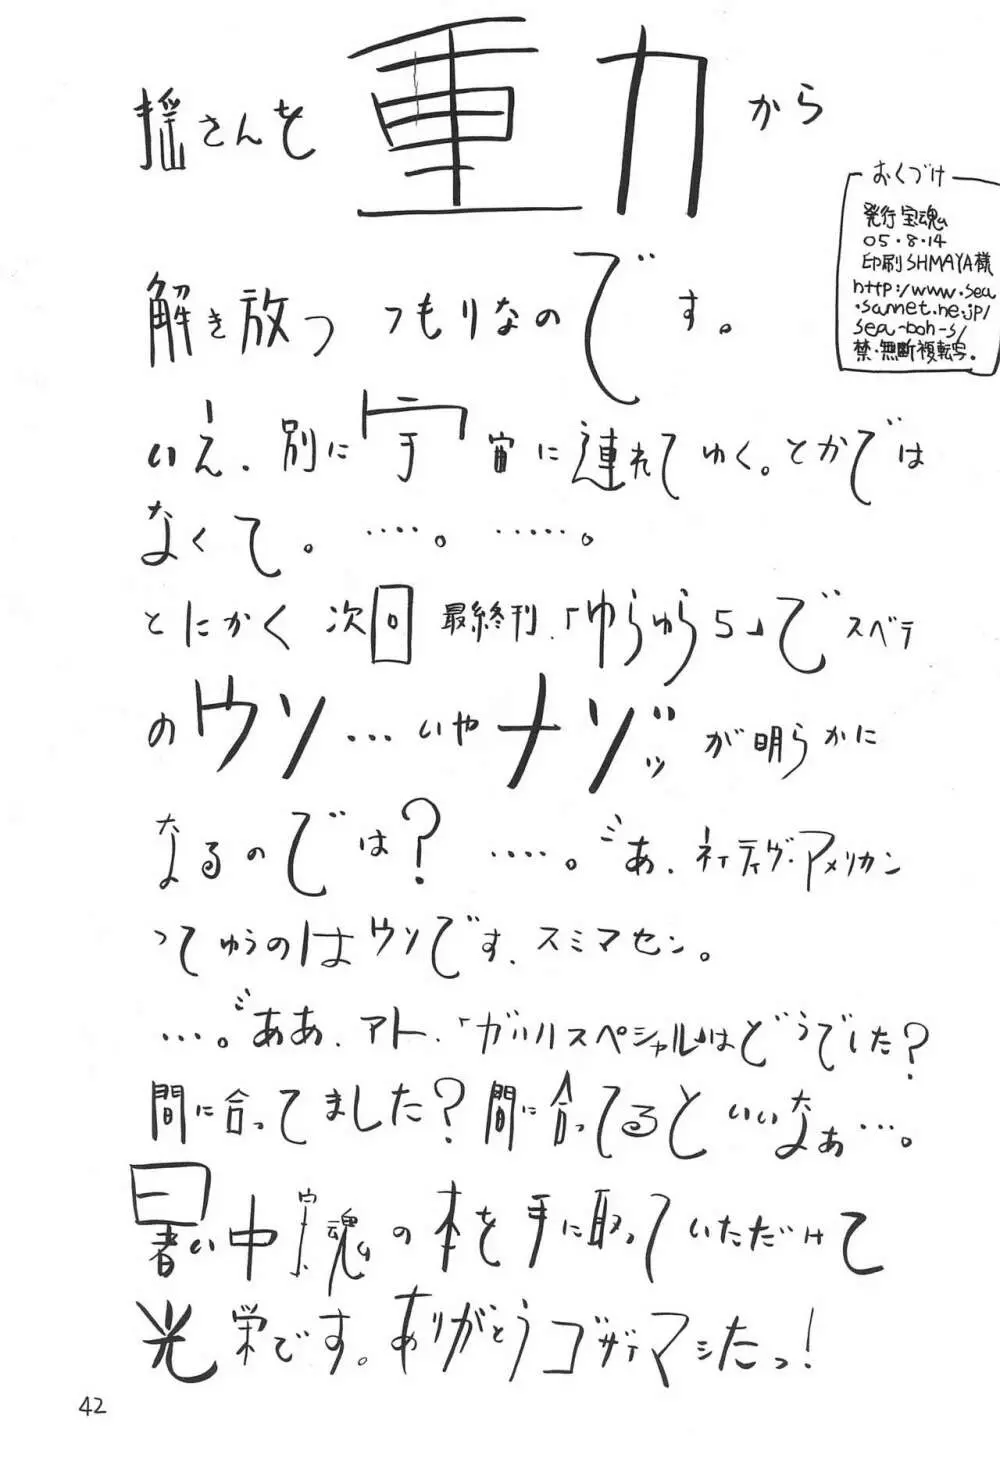 揺さんを重力から
解き放つつもりなのです。
いえ、別に宇宙に連れてゆく。とかでは
なくて。‥‥。‥‥‥。
とにかく次回最終刊、「ゆらゆら5」でスベテ
のウソ…いやナゾッッが明らかに
なるのでは?‥‥。あ、ネイティヴ・アメリカン
ってゆうのはウソです、スミマセン。
‥‥。ああ、アト、「ガハハスペシャル」はどうでした?
間に合ってました?間に合ってるといいなぁ…。
暑い中宝魂の本を手に取っていただけて
光栄です。ありがとうゴザイマシたっ!
おくづけ
発行 宝魂
05・8・14
印刷 SHMAYA様
http://www.sea
.sannet.ne.jp/
sea-boh-s/
禁・無断複転写。
42